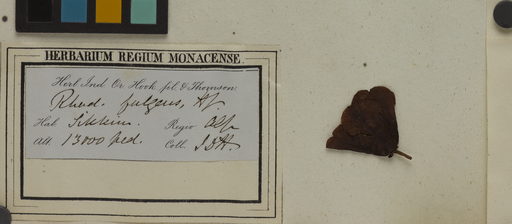 HERBARIUM REGIUM MONACENSE.
Herb. Ind. Or. Hook. fil. & Thomson.
Rhod. fulgens, Hf.
Hab. Sikkim. Regio Alp.
Alt. 13000 ped. Coll. J.D.H.